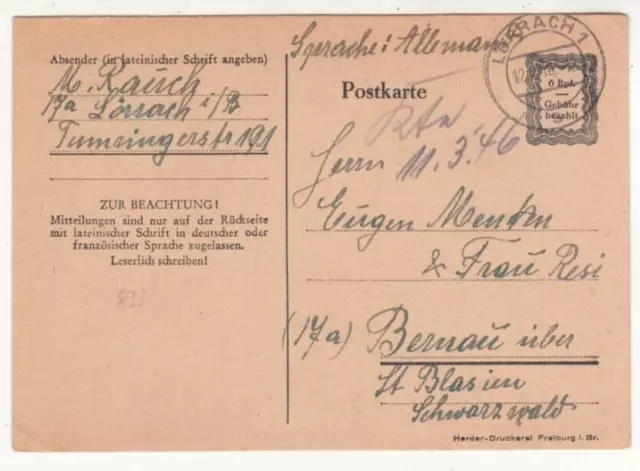 Absender (in lateinischer Schrift angeben)
M. Rauch
17a Lörrach i/B
Tumringerstr 191
ZUR BEACHTUNG!
Mitteilungen sind nur auf der Rückseite
mit lateinischer Schrift in deutscher oder
französischer Sprache zugelassen.
Leserlich schreiben!
833
Sprache: Allemand
Postkarte
LÖRRACH 1
6 Rpf.
—
Gebühr
bezahlt
11.3.46
Herrn
Eugen Menken
& Frau Resi
(17a) Bernau über
St Blasien
Schwarzwald
Herder-Druckerei Freiburg i. Br.